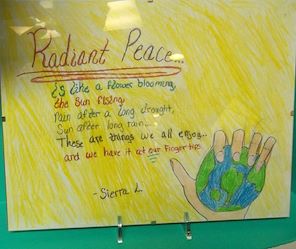 Radiant Peace...
is like a flower blooming,
the Sun rising,
Rain after a long drought,
Sun after long rain...
These are things we all enjoy...
and we have it at our fingertips.
-Sierra L.